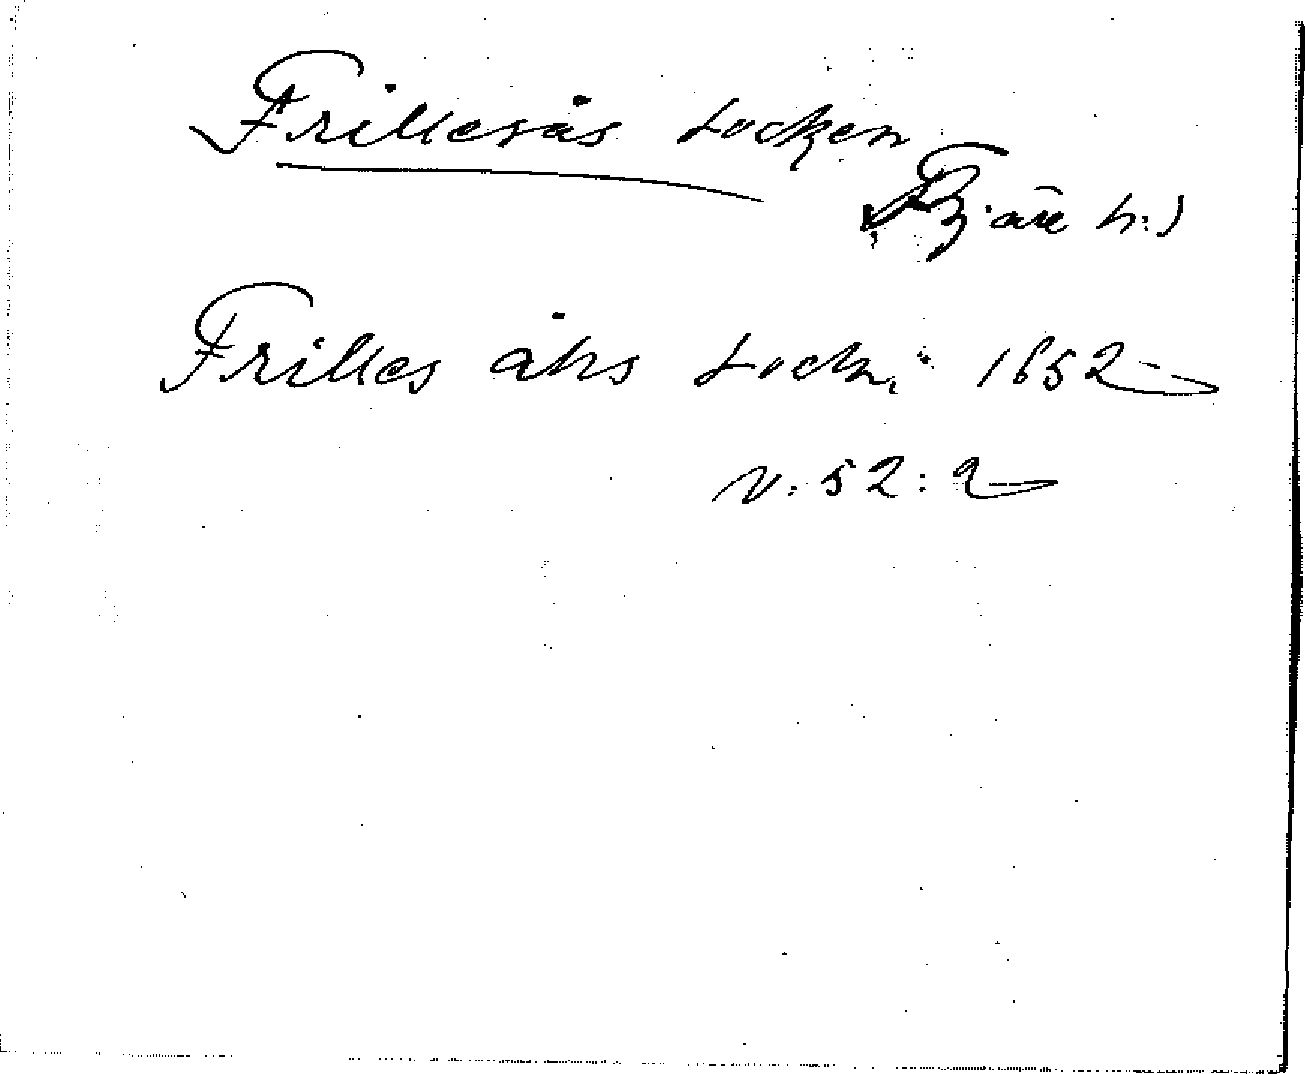 Frillesås socken
Fjäre h.)
Frilles åhs Sockn. 1652
N. 52: 2